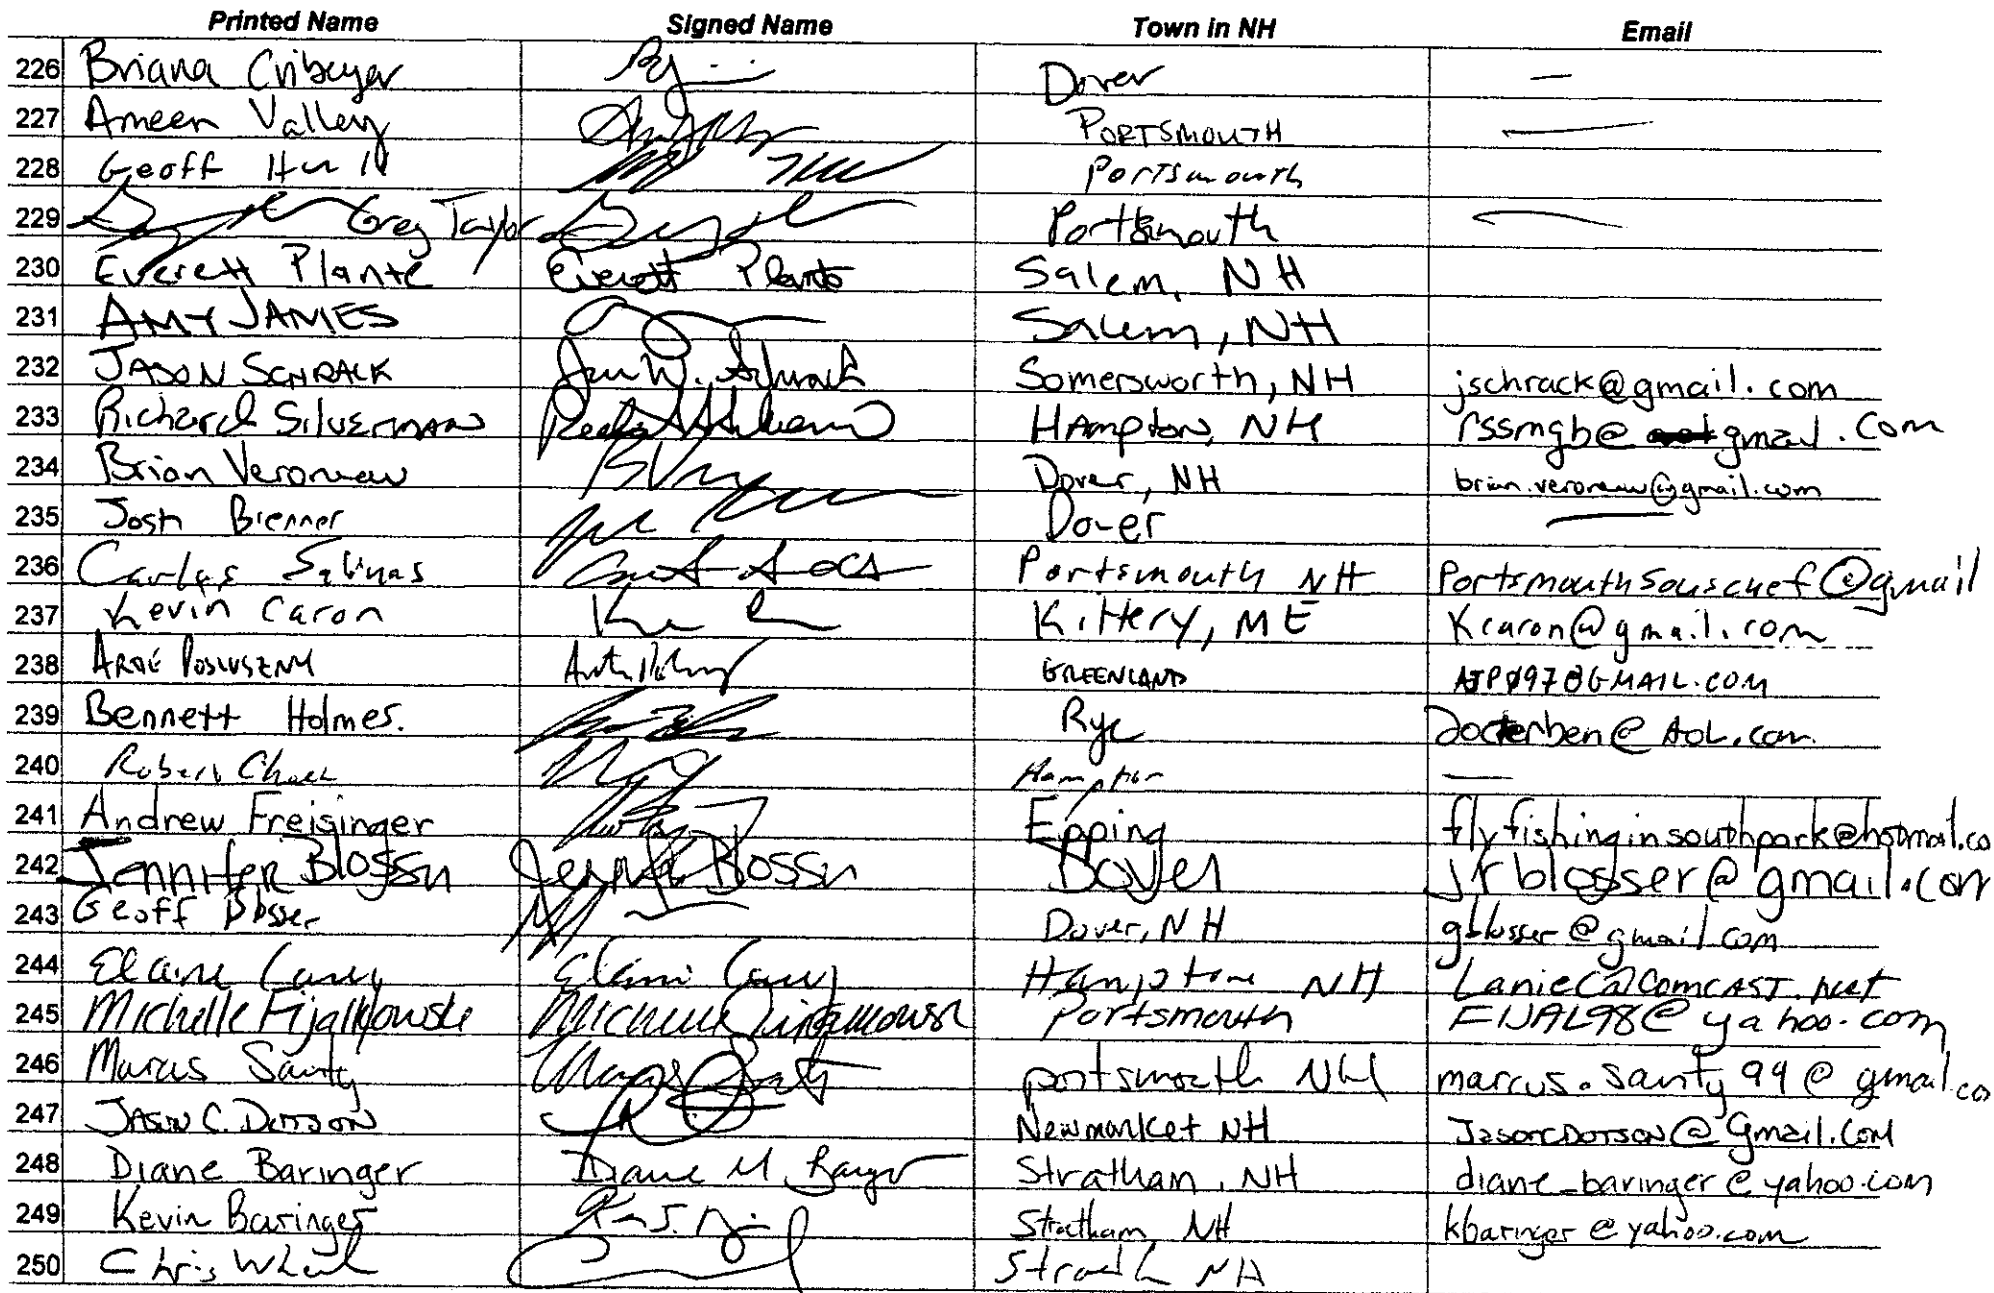 Printed Name Signed Name Town in NH Email
226 Briana Dover —
227 Ameen Valley PORTSMOUTH —
228 Geoff Portsmouth
229 Greg Taylor Portsmouth —
230 Everett Plante Everett Plante Salem, NH
231 AMY JAMES Salem, NH
232 JASON SCHRACK Somersworth, NH jschrack@gmail.com
233 Richard SILVERMAN HAmpton, NH rssmgb@ gmail.com
234 Brian Veroneau Dover, NH brian.veroneau@gmail.com
235 Josh Brenner Dover —
236 Carlos Salinas Portsmouth NH Portsmouthsouschef@gmail
237 Kevin Caron Kittery, ME Kcaron@gmail.com
238 POSLUSZNY GREENLAND AJP097@GMAIL.COM
239 Bennett Holmes. Rye Docterben@AOL.com
240 Robert Hampton —
241 Andrew Freisinger Epping flyfishinginsouthpark@hotmail.co
242 JENNIFER Blosser Dover jrblosser@gmail.com
243 Geoff Blosser Dover, NH gblosser@gmail.com
244 Elaine Carey Elaine Carey Hampton NH LanieC@Comcast.net
245 Michelle Fijalkowski Michelle Fijalkowski Portsmouth FIJAL98@yahoo.com
246 Marcus Santy portsmouth NH marcus.santy99@gmail.co
247 JASON C. DOTSON Newmarket NH JasonCDOTSON@Gmail.Com
248 Diane Baringer Diane M. Stratham, NH diane_baringer@yahoo.com
249 Kevin Baringer Stratham, NH kbaringer@yahoo.com
250 Chris NH